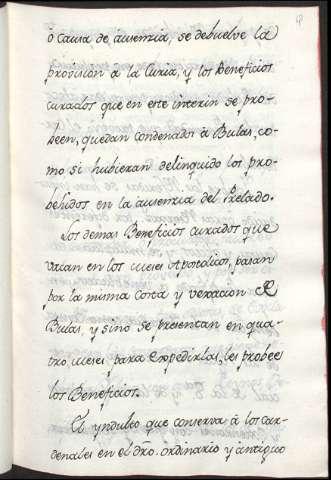 ò causa de ausenzia, se debuelve la
provision à la Curia, y los Beneficios
curados que en este interin se pro-
been, quedan condenados à Bulas, co-
mo si hubieran delinquido los pro-
behidos en la ausenzia del Prelado.
Los demas Beneficios curados que
vacan en los meses Apostolicos, pasan
por la misma costa y vexacion de
Bulas, y sino se presentan en qua-
tro meses para expedirlas, les probee
los Beneficios.
El yndulto que conserva à los car-
denales en el dro. ordinario y antiguo